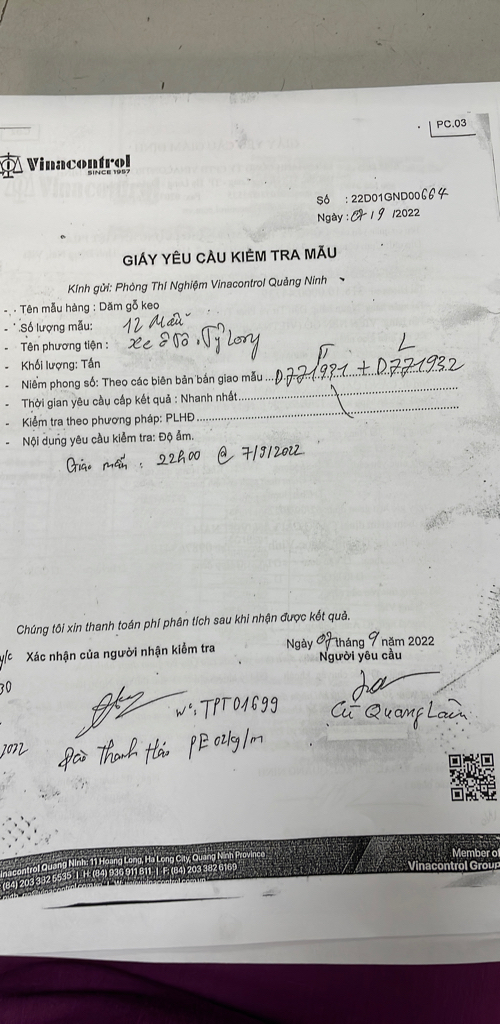 PC.03
Vinacontrol
SINCE 1957
Số : 22D01GND00664
Ngày : 07/9 /2022
GIẤY YÊU CẦU KIỂM TRA MẪU
Kính gửi: Phòng Thí Nghiệm Vinacontrol Quảng Ninh
- Tên mẫu hàng : Dăm gỗ keo
- Số lượng mẫu: 12 Mẫu
- Tên phương tiện : Xe ô tô
- Khối lượng: Tấn
- Niêm phong số: Theo các biên bản bấn giao mẫu D771931 + D.771932
- Thời gian yêu cầu cấp kết quả : Nhanh nhất
- Kiểm tra theo phương pháp: PLHĐ
- Nội dung yêu cầu kiểm tra: Độ ẩm.
Giao mẫu : 22h00 @ 7/9/2022
Chúng tôi xin thanh toán phí phân tích sau khi nhận được kết quả.
Ngày 07 tháng 9 năm 2022
y/c Xác nhận của người nhận kiểm tra
Người yêu cầu
30
TPT01699
Cù Quang
2022
Đào Thanh Hảo PE 02kg/m
Member of
Vinacontrol Group
Vinacontrol Quang Ninh: 11 Hoang Long, Ha Long City, Quang Ninh Province
(84) 203 382 5535 | H: (84) 936 911 811 | F: (84) 203 382 6169